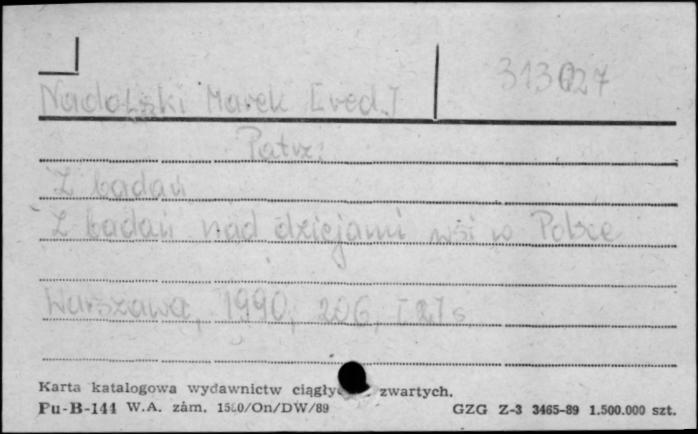 313027
Nadolski Marek [red.]
Patrz:
Z badań
Z badań nad dziejami wsi w Polsce
Warszawa, 1990, 206, [2] s.
Karta katalogowa wydawnictw zwartych.
Pu-B-144 W.A. zam. /On/DW/89 GZG Z-3 3465-89 1.500.000 szt.